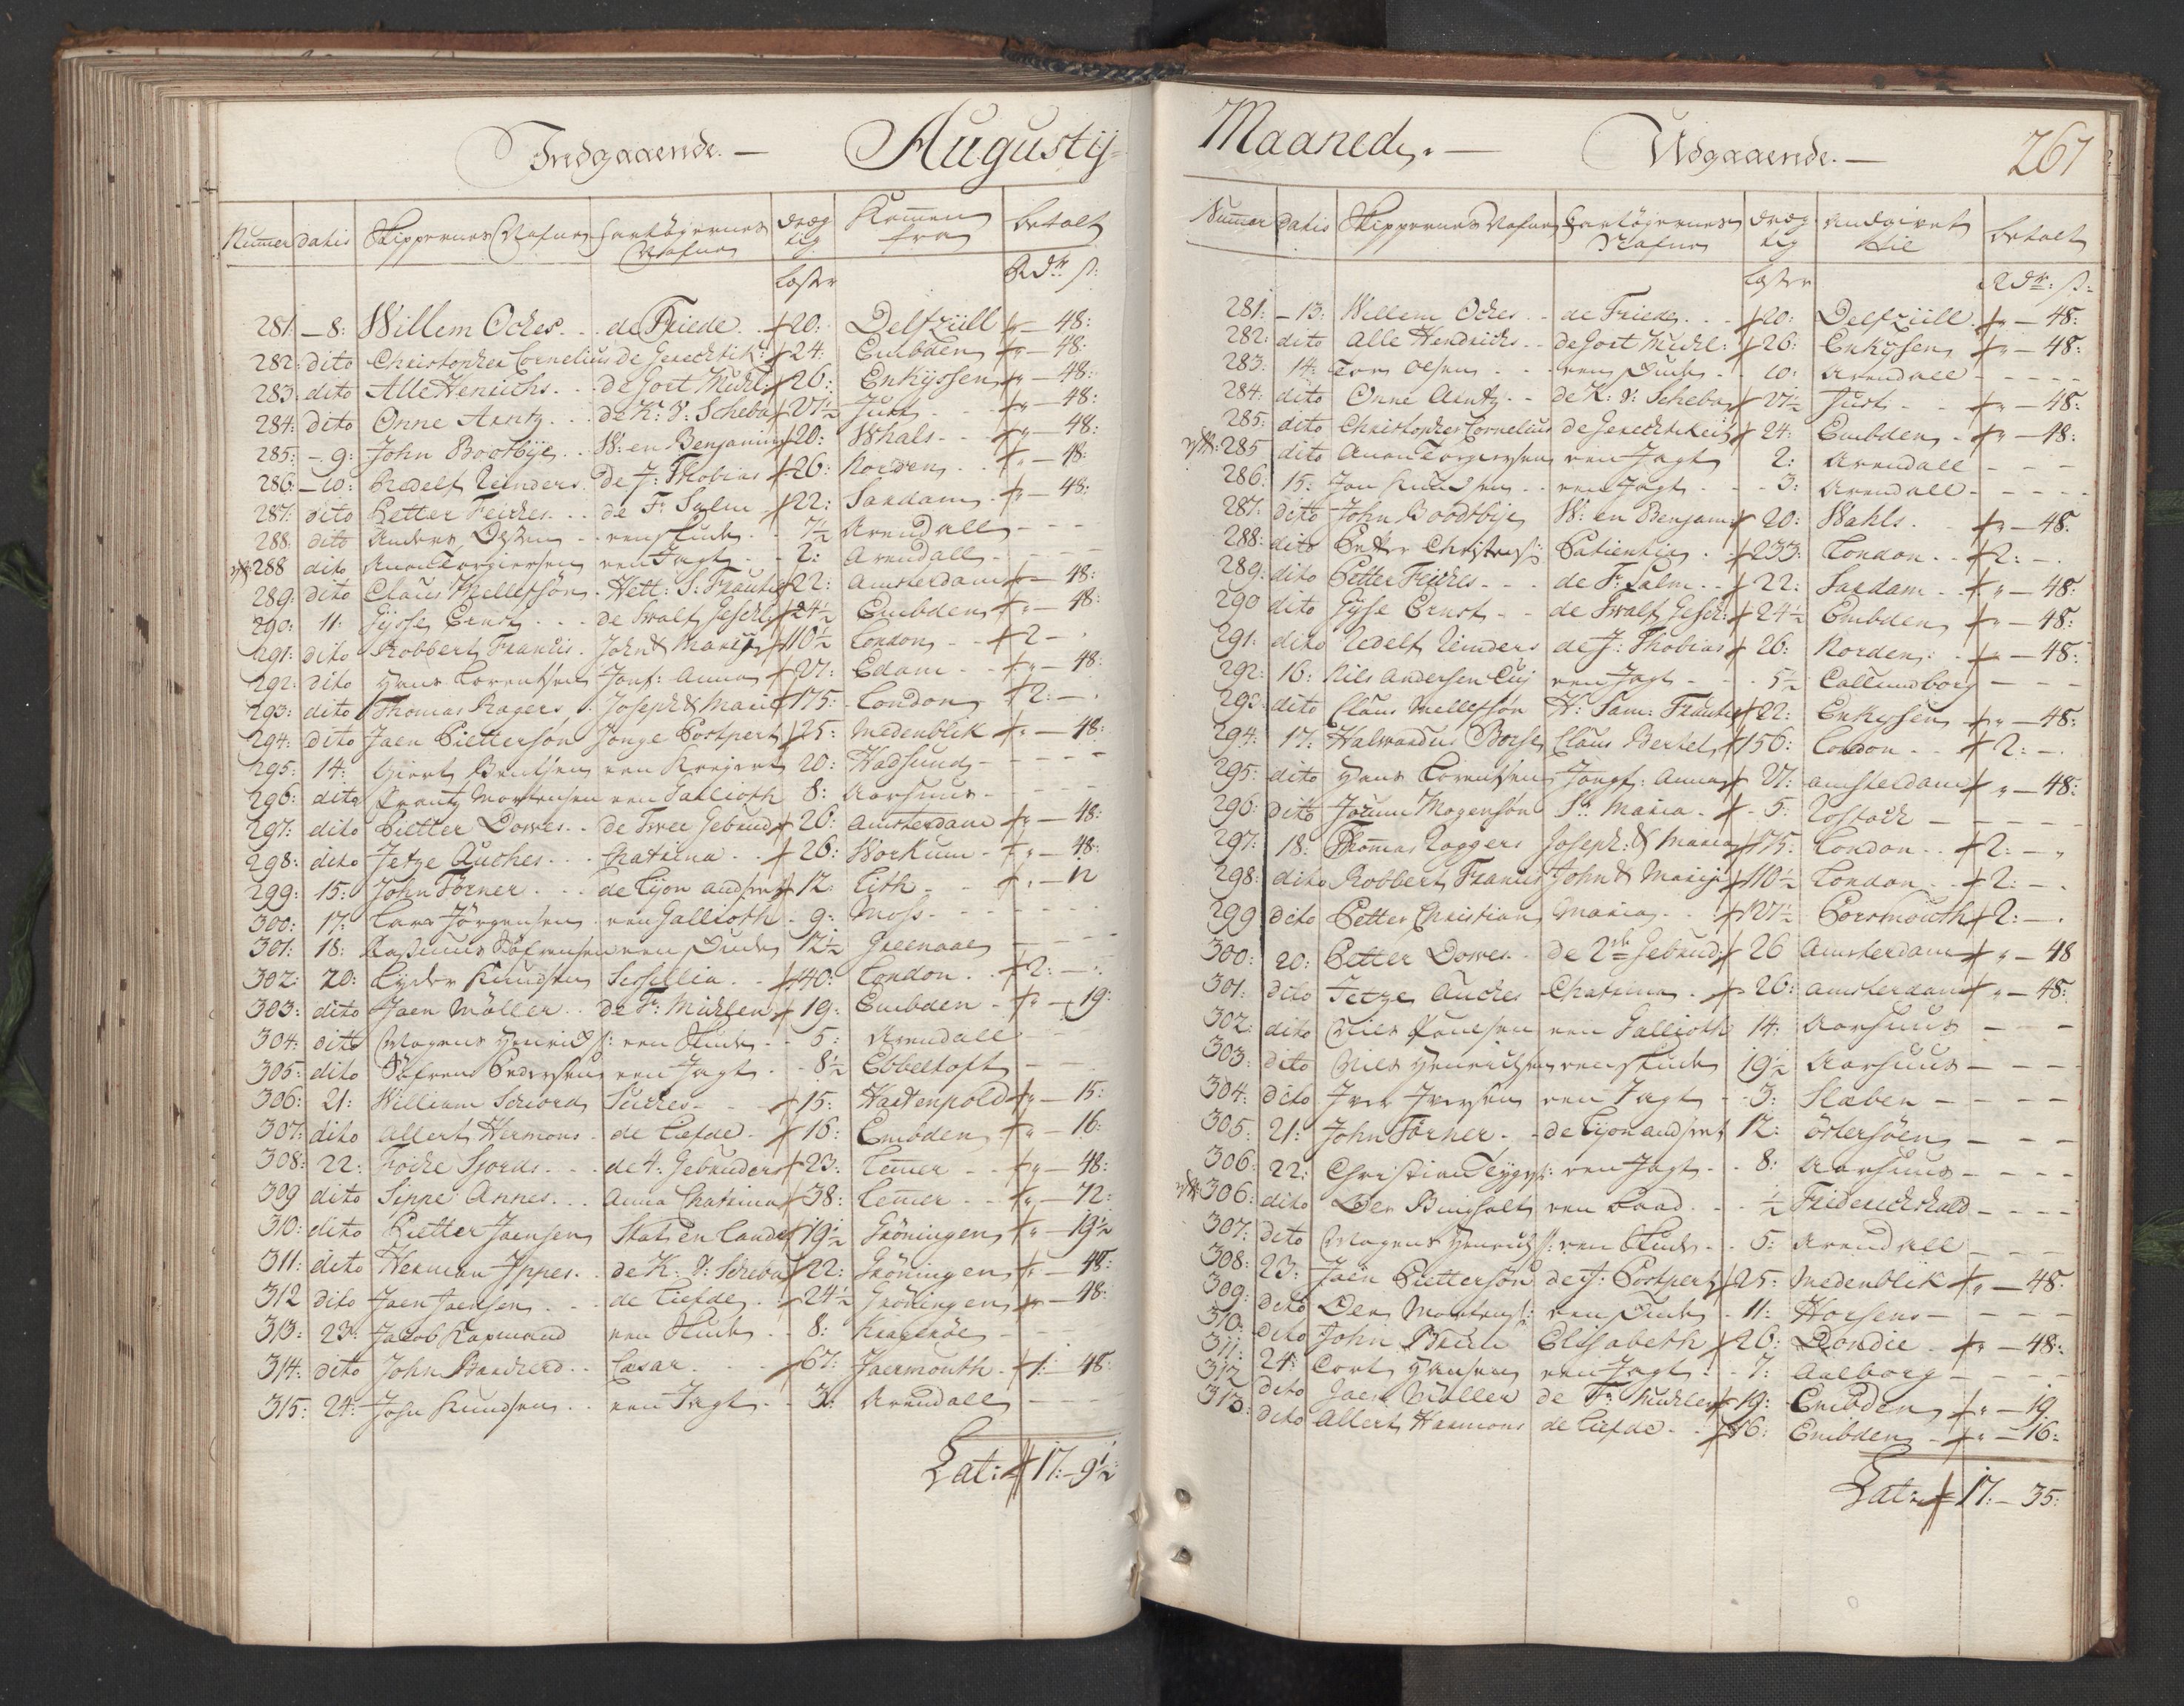 Indgaaende. — Augustij
Numer datis Skippernes Nafne Fartøyernes Nafne Dræg tig Læster Kommen fra betalt Rdr. ß:
281. — 8: Willem Ockes. . . de Friede. . 20: Delfziill „ — 48:
282: dito Christopher Cornelius de Gerechtik: 24: Embden „ — 48:
283. dito Alle Henrichs. . . de Goet Mechl: 26: Enkyssen „ — 48:
284: dito Onne Arntz. . . de K: V: Scheba 27½ Just. . . „ — 48:
285: — 9: John Bootbye. . W: en Benjamin 20: Whals. . . „ — 48:
286: — 10: Redelf Reinders. De J: Thobias 26: Norden. . . „ — 48:
287: dito Petter Feickes. . . de Fr: Salm. 22: Sardam. . „ — 48:
288. dito Anders Olsen . . een skude. . 7½ Arendall — — —
288 dito Anon Torgiersen een Jagt. . . 2: Arendall. — — —
289: dito Claus Mellefsön. Hett: S: Frauke 22: Amsterdam „ — 48:
290: 11: Gysse Ernst . . . de Swalf Geschl: 24½ Embden „ — 48:
291: dito Robbert Francis. John & Marij 110½ London . . 2 — .
292: dito Hans Lorentsen Jonf: Anna 27: Edam . . . „ — 48:
293: dito Thomas Ragers. . Joseph & Marie 175: London. 2: — .
294: dito Jaen Piettersøn Jonge Postpert 25: Medenblik „ — 48:
295: 14: Giert Bentsen een Krejert 20: Hadsund — — — —
296: dito Frantz Mortensen een Gallioth 8: Aarhuus — — — —
297: dito Pietter Dowes. . de Twee Gebrud: 26: Amsterdam „ — 48:
298: dito Jetze Auckes. . . Chatrina. . 26: Workum — „ — 48:
299: 15: John Törner. . . de Lijon and 12: Lith. . . „ — 12
300: 17: Lars Jörgensen. een Gallioth. 9: Moss. — — — —
301: 18: Rasmus Söfrensen een Skude 12½ Greenaae — — —
302: 20: Lyder Knudsen Sessillia. . . 140: London. . 2: — .
303: dito Jaen Möller. . de Fr: Michlen 19: Embden. . „ — 19:
304: dito Mogens Henrichs: een Skude. . 5: Arendall — —
305: dito Söfren Pedersen een Jagt. . . 8½ Ebbeltoft — — —
306: 21: William Seword Suckes. . . 15: Hartenpold „ — 15:
307: dito Allert Hermons. de Liefde. . 16: Embden. „ — 16:
308: 22: Focke Sjords. . . de 4. Gebruders 23: Lemer . . . „ — 48:
309 dito Sippe Annes. . . Anna Chatrina 38: Lemer. . . „ — 72:
310: dito Pietter Jaensen Stat en Lande 19½ Gröningen „ — 19½
311: dito Herman Ippes. . de K: V: Scheba 22: Gröningen „ — 48:
312 dito Jaen Jaensen. . . de Liefde. . . 24½ Gröningen „ — 48:
313: 23: Jacob Kapmand een Skude. . 8: Kragerøe — — —
314: dito John Bandserd. . Cæsar. . . 67: Jaermouth. 1: 48:
315: 24: John Knudsen. . een Jagt. . 3: Arendall — — —
Lat: 17: — 9½
Maaned. — Udgaaende. — 267
Numer datis Skippernes Nafne Fartøyernes Nafne Dræg tig Læster Andgivet til betalt Rdr: ß:
281: — 13: Willem Ockes. . de Friede. . . 20: Delfziill. „ — 48:
282: dito Alle Hendrichs. . de Goet Mechl: 26: Enkysen „ — 48:
283. 14: Tore Olsen . . . een Skude. . . 10: Arendall — — — —
284: dito Onne Arntz. . . de K: V: Scheba 27½ Just. . . „ — 48:
285: dito Christopher Cornelius de Gerechtikeit 24: Embden. . „ — 48:
285 dito Anon Torgiersen een Jagt 2: Arendall — — —
286. 15: Jon Knudsen. . een Jagt. . . 3: Arendall — — — —
287: dito John Boodbije W: en Benjam: 20: Wahls. . . „ — 48:
288: dito Petter Christens: Patientia. . 233: London. . 2: — .
289: dito Petter Feickes. . . de Fr: Salm. . 22: Sardam. . „ — 48:
290 dito Gysse Ernst. . . de Swalf Gesch: 24½ Embden „ — 48:
291: dito Redelf Reinders de J: Thobias 26: Norden: . „ — 48:
292: 16: Nils Andersen Cuj een Jagt. . . 5½ Callundborg — — —
293: dito Claus Mellefsön H: Sam: Frauke 22: Enkysen „ — 48:
294: 17: Halwardus Borse Claus Bertel 156: London. . . 2: — .
295: dito Hans Lorentsen Jongf: Anna 27: Amsterdam „ — 48:
296: dito Jochum Mogensøn St: Maria. . . 5: Rostock — — — —
297: 18: Thomas Roggers Joseph: & Maria 175: London. . . 2: — „
298: dito Robbert Francis John & Marij 110½ London. . 2: — .
299 dito Petter Christian Maria. . . 127½ Porsmouth 2: — .
300: 20: Petter Dowes. . de 2de Gebrud: 26 Amsterdam „ — 48
301: dito Jetze Auckes Chatrina. . 26: Amsterdam „ — 48:
302: dito Niels Poulsen een Gallioth 14: Aarhuus — — —
303: dito Niels Henrichsen een skude 19½ Aarhuus — — — —
304: dito Iver Iversen een Jagt. . . 3: Slæben — — — —
305: 21: John Törner. . de Lijon and 12: östersöen — — —
306: 22: Christian een Jagt. . . 8: Aarhuus — — — —
306: dito Oder een Baad. . . ½ Friderichshald — — — —
307: dito Mogens Henrichs: een Skude. . 5: Arendall — — —
308: 23: Jaen Piettersøn de J: Postpert 25: Medenblik „ — 48:
309: dito Oder Mortens: een Skude . 11: Horsens — — — —
310: dito John Elisabeth 26: Dondie. . „ — 48:
311: 24: Cort Hansen een Jagt. . . 7: Aalborg — — — —
312 dito Jaen Möller de Fr: Michlen 19: Embden „ — 19
313: dito Allert Harmons de Liefde. . 16: Embden. „ — 16:
Lat: 17: — 35: